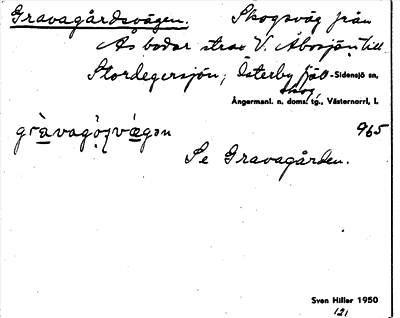 Gravagårdsvägen. Skogsväg från
Åsbodar strax V. Åbosjön till
Stordegersjön; Österby fjäl-Sidensjö sn,
skog
Ångermanl. n. doms. tg., Västernorrl, l.
965
Se Gravagården.
Sven Hiller 1950
121